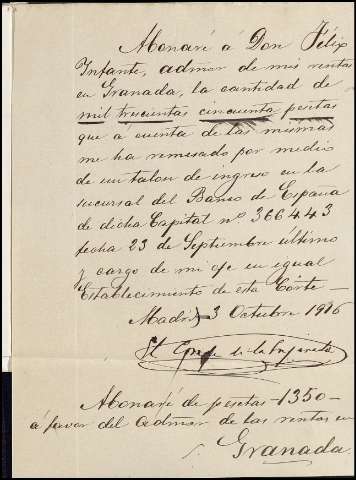 Abonaré á Don Félix
Infante, admor de mis rentas
en Granada, la cantidad de
mil trescientas cincuenta pesetas
que á cuenta de las mismas
me ha remesado por medio
de un talon de ingreso en la
sucursal del Banco de España
de dicha Capital nº 366443
fecha 23 de Septiembre último
y cargo de mi c/c en igual
Establecimiento de esta Córte—
Madrid 3 Octubre 1916
El de la
Abonaré de pesetas -1350-
á favor del Admor de las rentas en
Granada